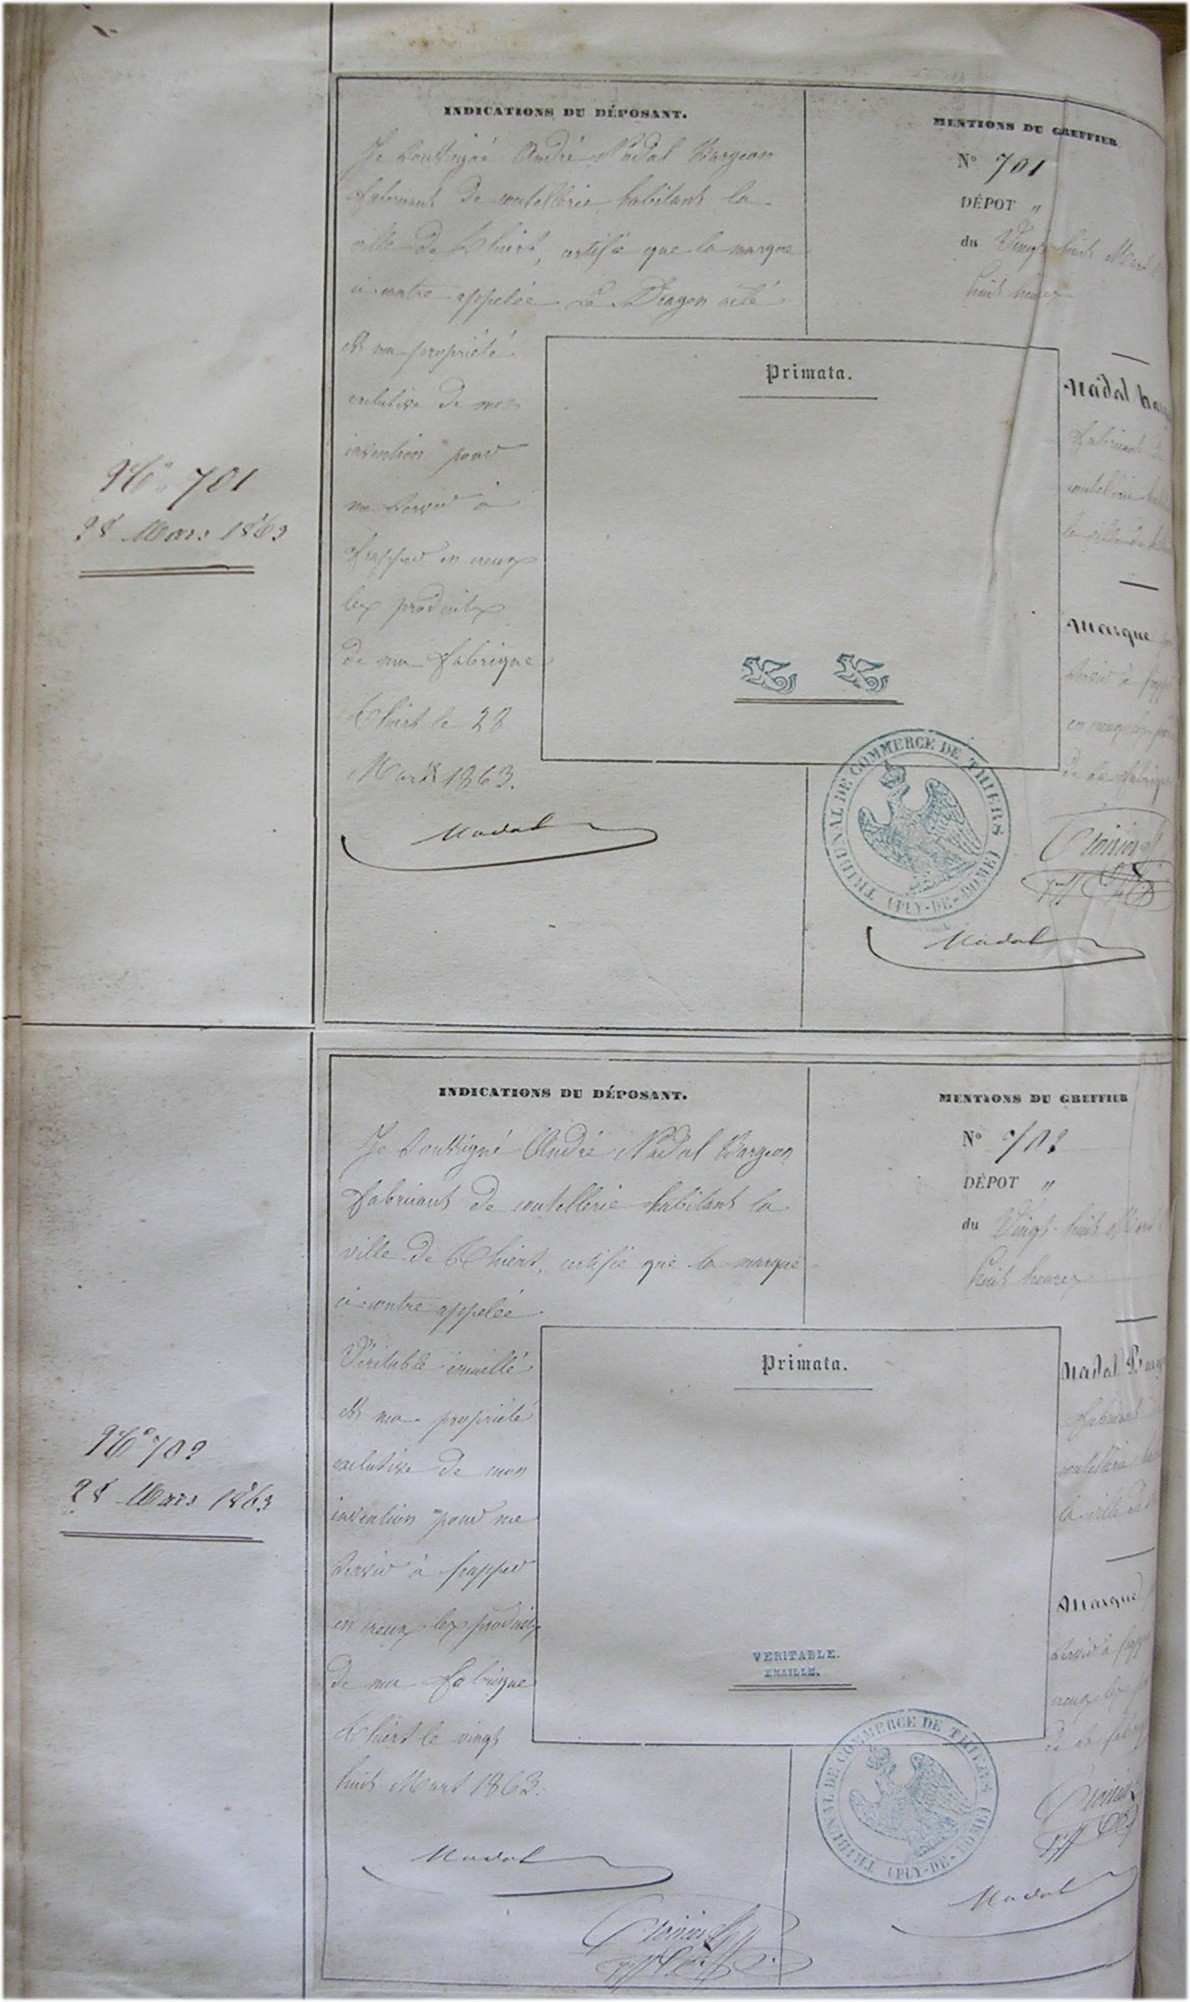 INDICATIONS DU DÉPOSANT.
Je soussigné André Nadal Bargeon
fabricant de coutellerie habitant la
ville de Thiers, certifie que la marque
ci-contre appelée Le Dragon ailé
est ma propriété
exclusive de mon
invention pour
me servir à
frapper en creux
les produits
de ma fabrique
Thiers le 28
Mars 1863.
Nadal
MENTIONS DU GREFFIER
N° 701
DÉPOT "
du Vingt huit Mars
huit heures
Primata.
Nadal
fabricant
coutellerie
la ville de
Marque
servir à
en creux
de sa fabrique
TRIBUNAL DE COMMERCE DE THIERS
(PUY-DE-DOME)
Nadal
N° 701
28 Mars 1863
INDICATIONS DU DÉPOSANT.
Je soussigné André Nadal Bargeon
fabricant de coutellerie habitant la
ville de Thiers, certifie que la marque
ci-contre appelée
Véritable émaillé
est ma propriété
exclusive de mon
invention pour me
servir à frapper
en creux les produits
de ma fabrique
Thiers le vingt
huit Mars 1863.
Nadal
MENTIONS DU GREFFIER
N° 702
DÉPOT "
du Vingt huit Mars
huit heures
Primata.
VERITABLE.
EMAILLE.
Nadal
fabricant
coutellerie
la ville de
Marque
servir à
creux les
de sa
TRIBUNAL DE COMMERCE DE THIERS
(PUY-DE-DOME)
Nadal
N° 702
28 Mars 1863